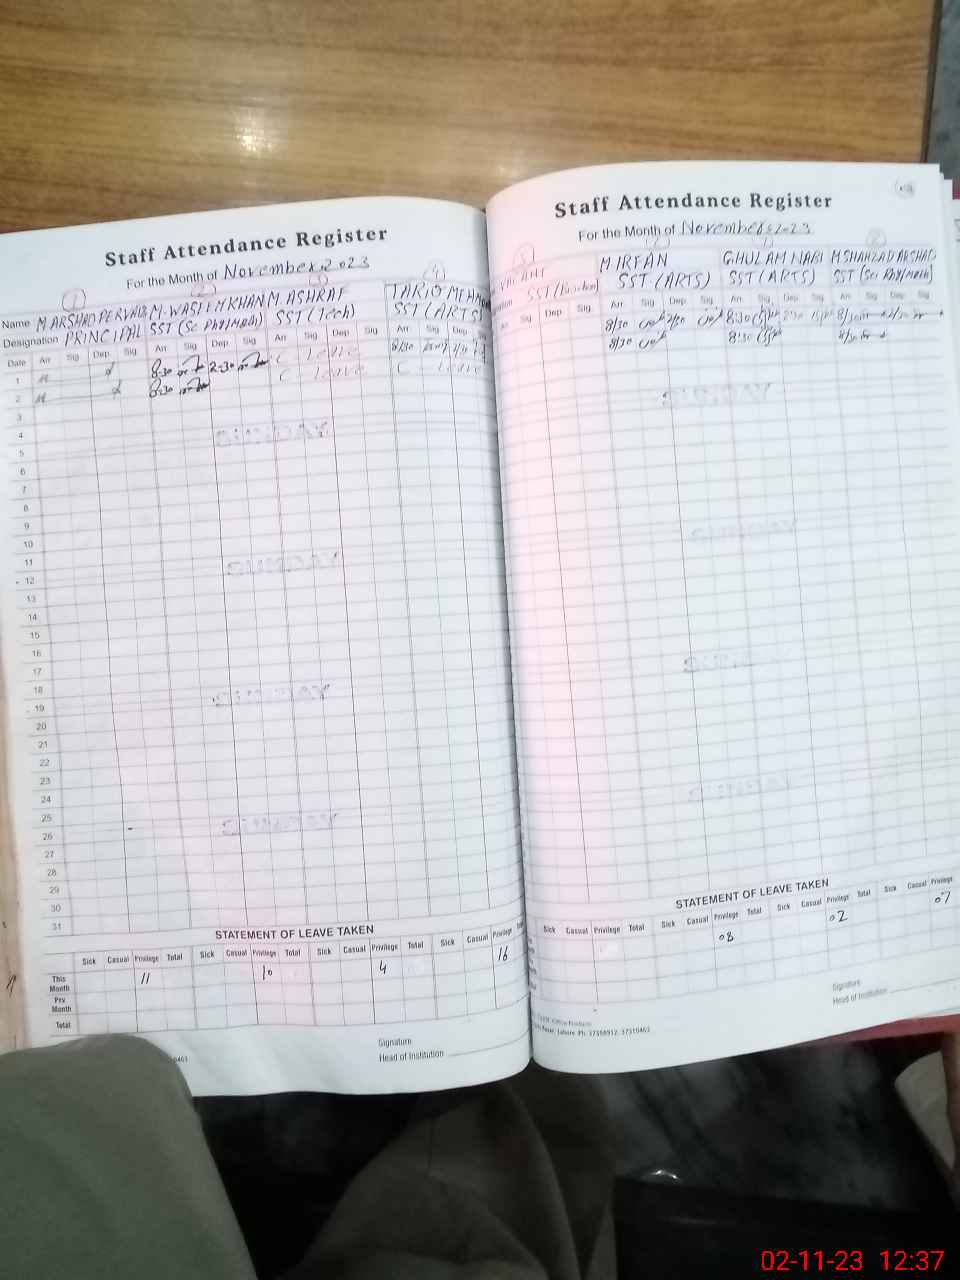 Staff Attendance Register
For the Month of November, 2023
1 2 3 4
Name M ARSHAD PERVAIZ M. WASEEM KHAN M. ASHRAF TARIQ MEHM
Designation PRINCIPAL SST (Sc Phy/Math) SST (Tech) SST (ARTS)
Date Arr Sig Dep Sig Arr Sig Dep Sig Arr Sig Dep Sig Arr Sig Dep Sig
1 8:30 2:30 C Leave 8/30
2 8:30 C Leave C Leave
3
4
5
6
7
8
9
10
11
12
13
14
15
16
17
18
19
20
21
22
23
24
25
26
27
28
29
30
31
STATEMENT OF LEAVE TAKEN
Sick Casual Privilege Total Sick Casual Privilege Total Sick Casual Privilege Total Sick Casual Privilege
This Month 11 10 4 16
Prv Month
Total
Signature
Head of Institution
Staff Attendance Register
For the Month of November 2023
5 2 1 2
VACANT M IRFAN GHULAM NABI M SHAHZAD ARSHAD
SST (ARTS) SST (ARTS) SST (Sci Phy/Math)
Arr Sig Dep Sig Arr Sig Dep Sig Arr Sig Dep Sig Arr Sig Dep Sig
8/30 2/30 8:30 2:30 8/30 2/30
8/30 8:30 8/30
STATEMENT OF LEAVE TAKEN
Sick Casual Privilege Total Sick Casual Privilege Total Sick Casual Privilege Total Sick Casual Privilege
08 02 07
Signature
Head of Institution
Lahore Ph: 37358912, 37310463
02-11-23 12:37